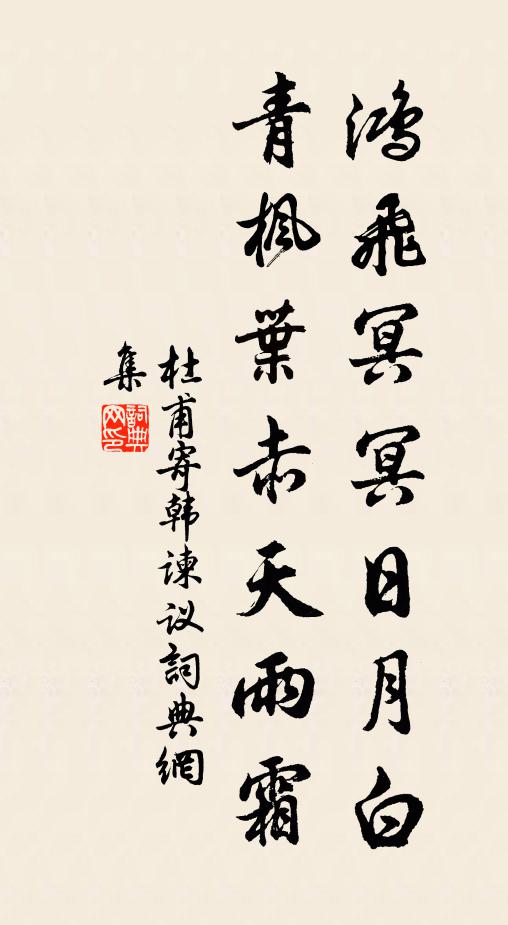 鸿飛冥冥日月白
青楓葉赤天雨霜
杜甫寄韩諫议詞典網
集
詞典
网印